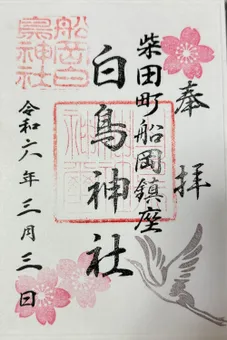 奉拝
柴田町船岡鎮座
白鳥神社
令和六年三月三日
船岡白
鳥神社